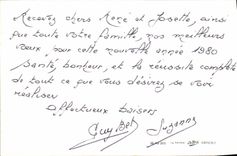 Recevez chers René et Josette, ainsi
que toute votre famille, nos meilleurs
vœux pour cette nouvelle année 1980
Santé, bonheur, et la réussite complète
de tout ce que vous désirez se voir
réaliser
Affectueux baisers
Guy Bet Suzanne